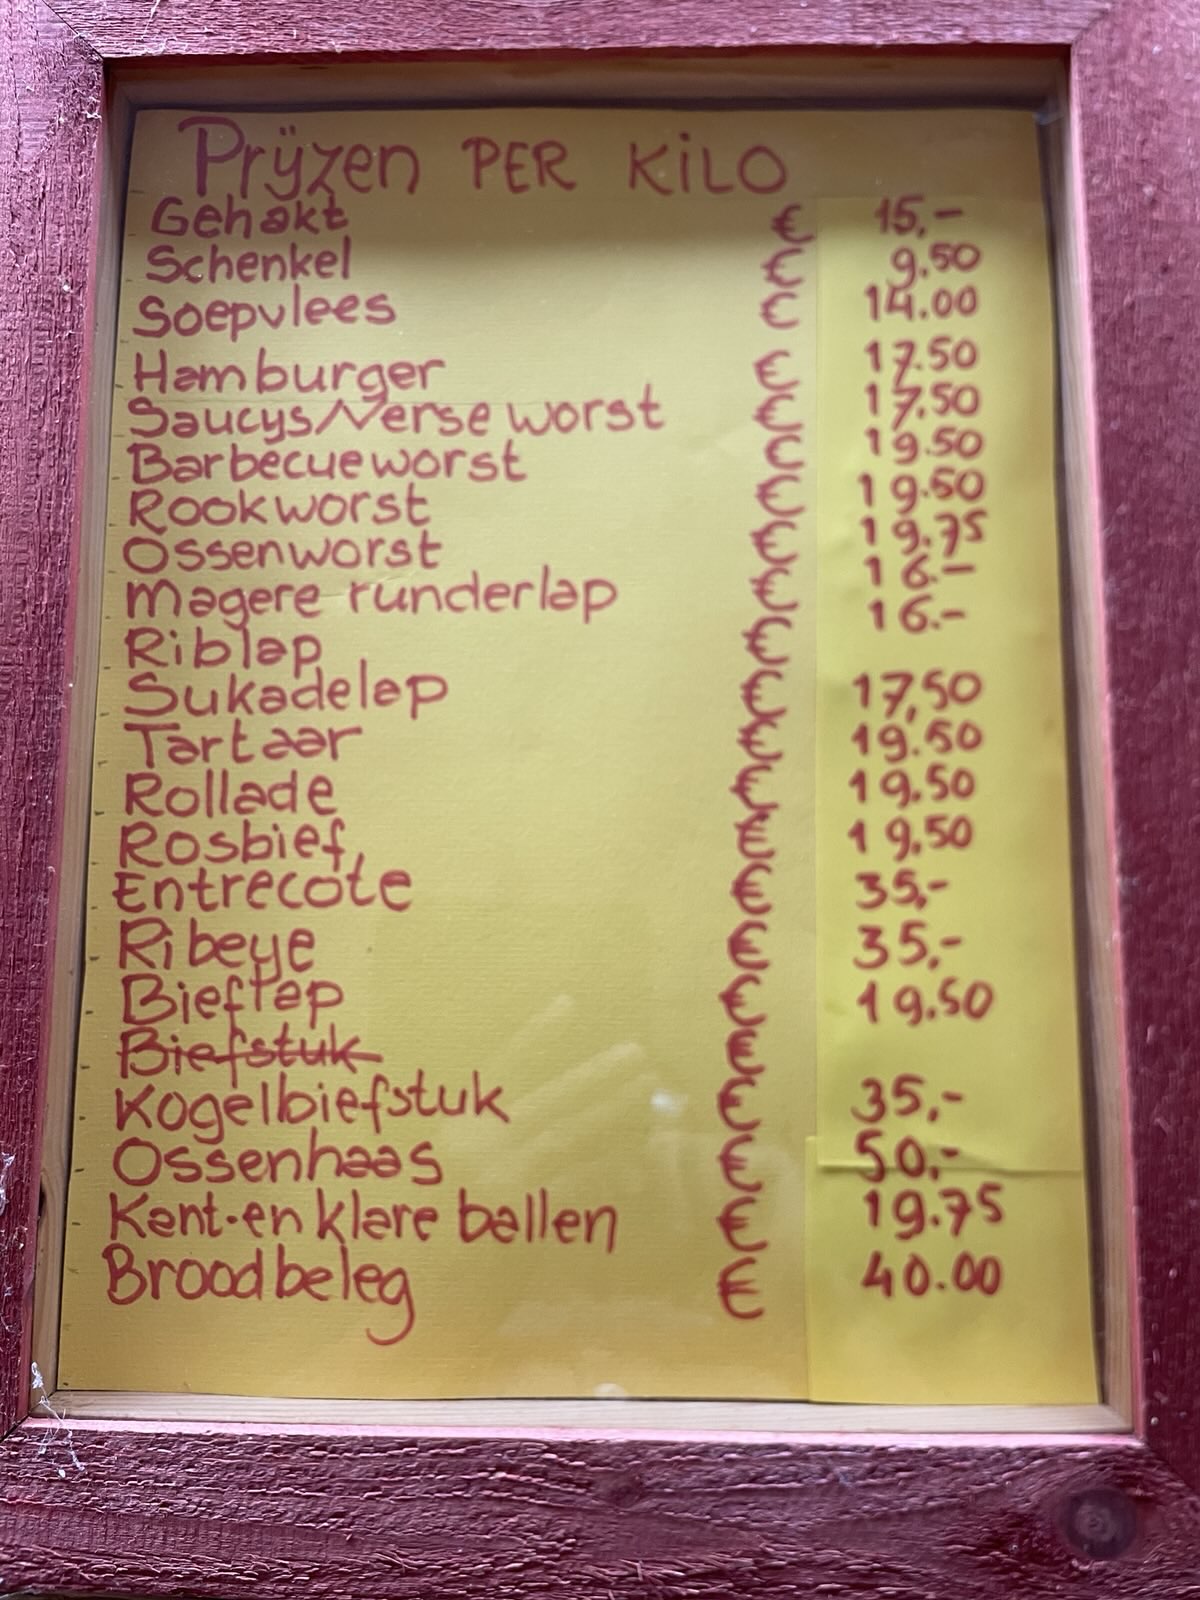 Prÿzen PER KiLO
Gehakt € 15,-
Schenkel € 9.50
Soepvlees € 14.00
Hamburger € 17.50
Saucys/Verse worst € 17.50
Barbecueworst € 19.50
Rookworst € 19.50
Ossenworst € 19.75
Magere runderlap € 16.-
Riblap € 16.-
Sukadelap € 17,50
Tartaar € 19.50
Rollade € 19.50
Rosbief € 19,50
Entrecôte € 35,-
Ribeye € 35,-
Bieflap € 19.50
Biefstuk €
Kogelbiefstuk € 35,-
Ossenhaas € 50,-
Kant-en klare ballen € 19.75
Broodbeleg € 40.00